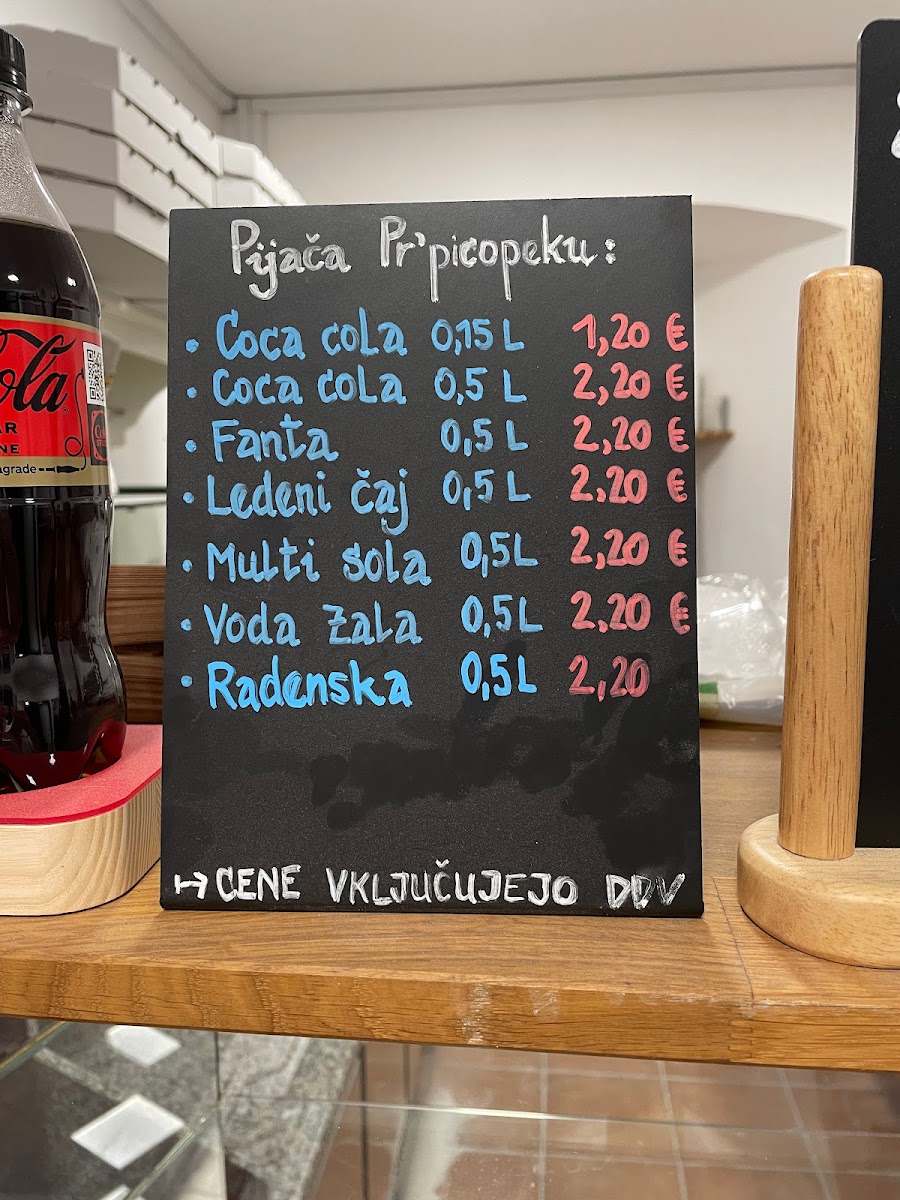 Pijača Pr'picopeku:
• Coca cola 0,15 L 1,20 €
• Coca cola 0,5 L 2,20 €
• Fanta 0,5 L 2,20 €
• Ledeni čaj 0,5 L 2,20 €
• Multi sola 0,5L 2,20 €
• Voda zala 0,5L 2,20 €
• Radenska 0,5L 2,20
↦ CENE VKLJUČUJEJO DDV
ola
AR
NE
agrade